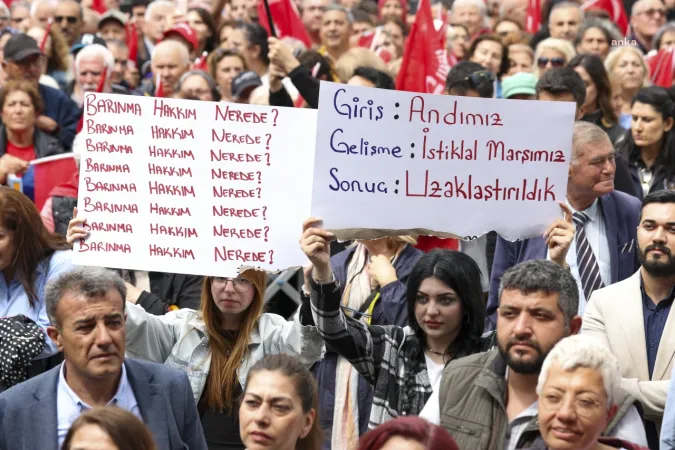 BARINMA HAKKIM NEREDE?
BARINMA HAKKIM NEREDE?
BARINMA HAKKIM NEREDE?
BARINMA HAKKIM NEREDE?
BARINMA HAKKIM NEREDE?
BARINMA HAKKIM NEREDE?
BARINMA HAKKIM NEREDE?
BARINMA HAKKIM NEREDE?
Giriş : Andımız
Gelişme : İstiklal Marşımız
Sonuç : Uzaklaştırıldık
anka